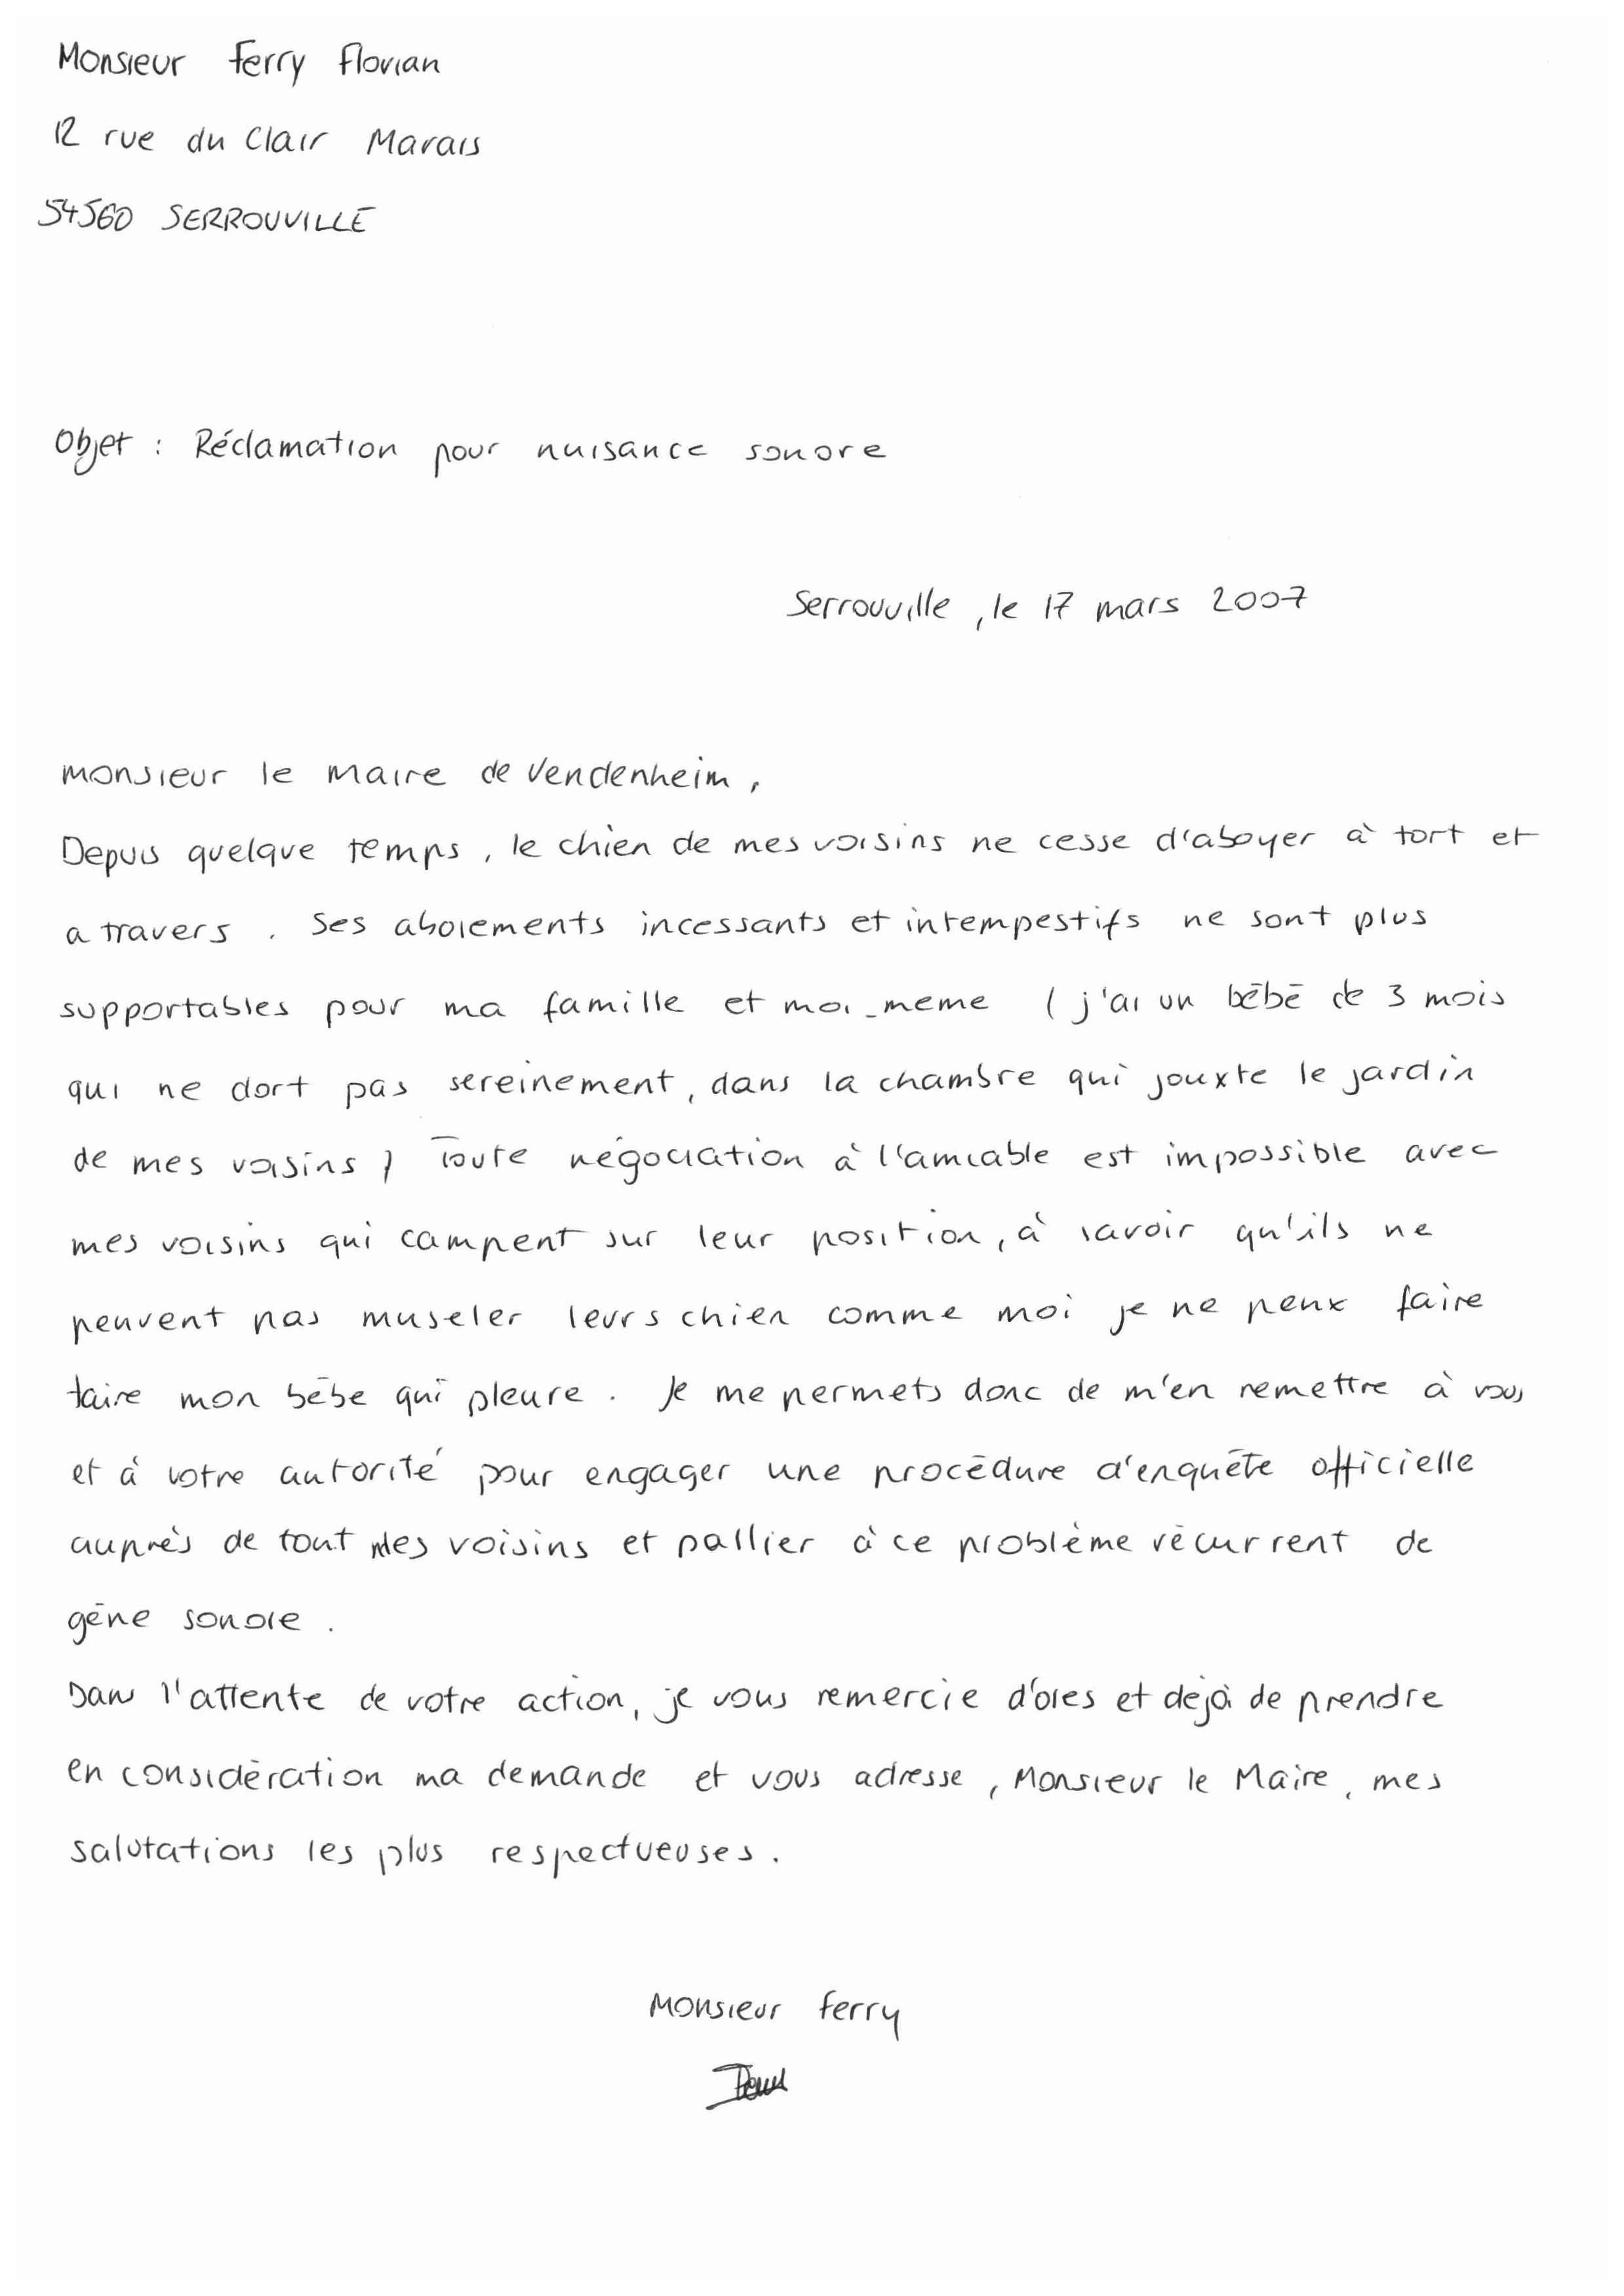 Monsieur Ferry Florian
12 rue du Clair Marais
54560 SERROUVILLE
Objet : Réclamation pour nuisance sonore
Serrouville, le 17 mars 2007
monsieur le maire de Vendenheim,
Depuis quelque temps, le chien de mes voisins ne cesse d'aboyer à tort et
a travers. Ses aboiements incessants et intempestifs ne sont plus
supportables pour ma famille et moi-meme (j'ai un bébé de 3 mois
qui ne dort pas sereinement, dans la chambre qui jouxte le jardin
de mes voisins) Toute négociation à l'amiable est impossible avec
mes voisins qui campent sur leur position, à savoir qu'ils ne
peuvent pas museler leurs chien comme moi je ne peux faire
taire mon bébe qui pleure. Je me permets donc de m'en remettre à vous
et à votre autorité pour engager une procédure d'enquête officielle
auprès de tout mes voisins et pallier à ce problème récurrent de
gêne sonore.
Dans l'attente de votre action, je vous remercie d'ores et dejà de prendre
en considération ma demande et vous adresse, Monsieur le Maire, mes
salutations les plus respectueuses.
Monsieur Ferry